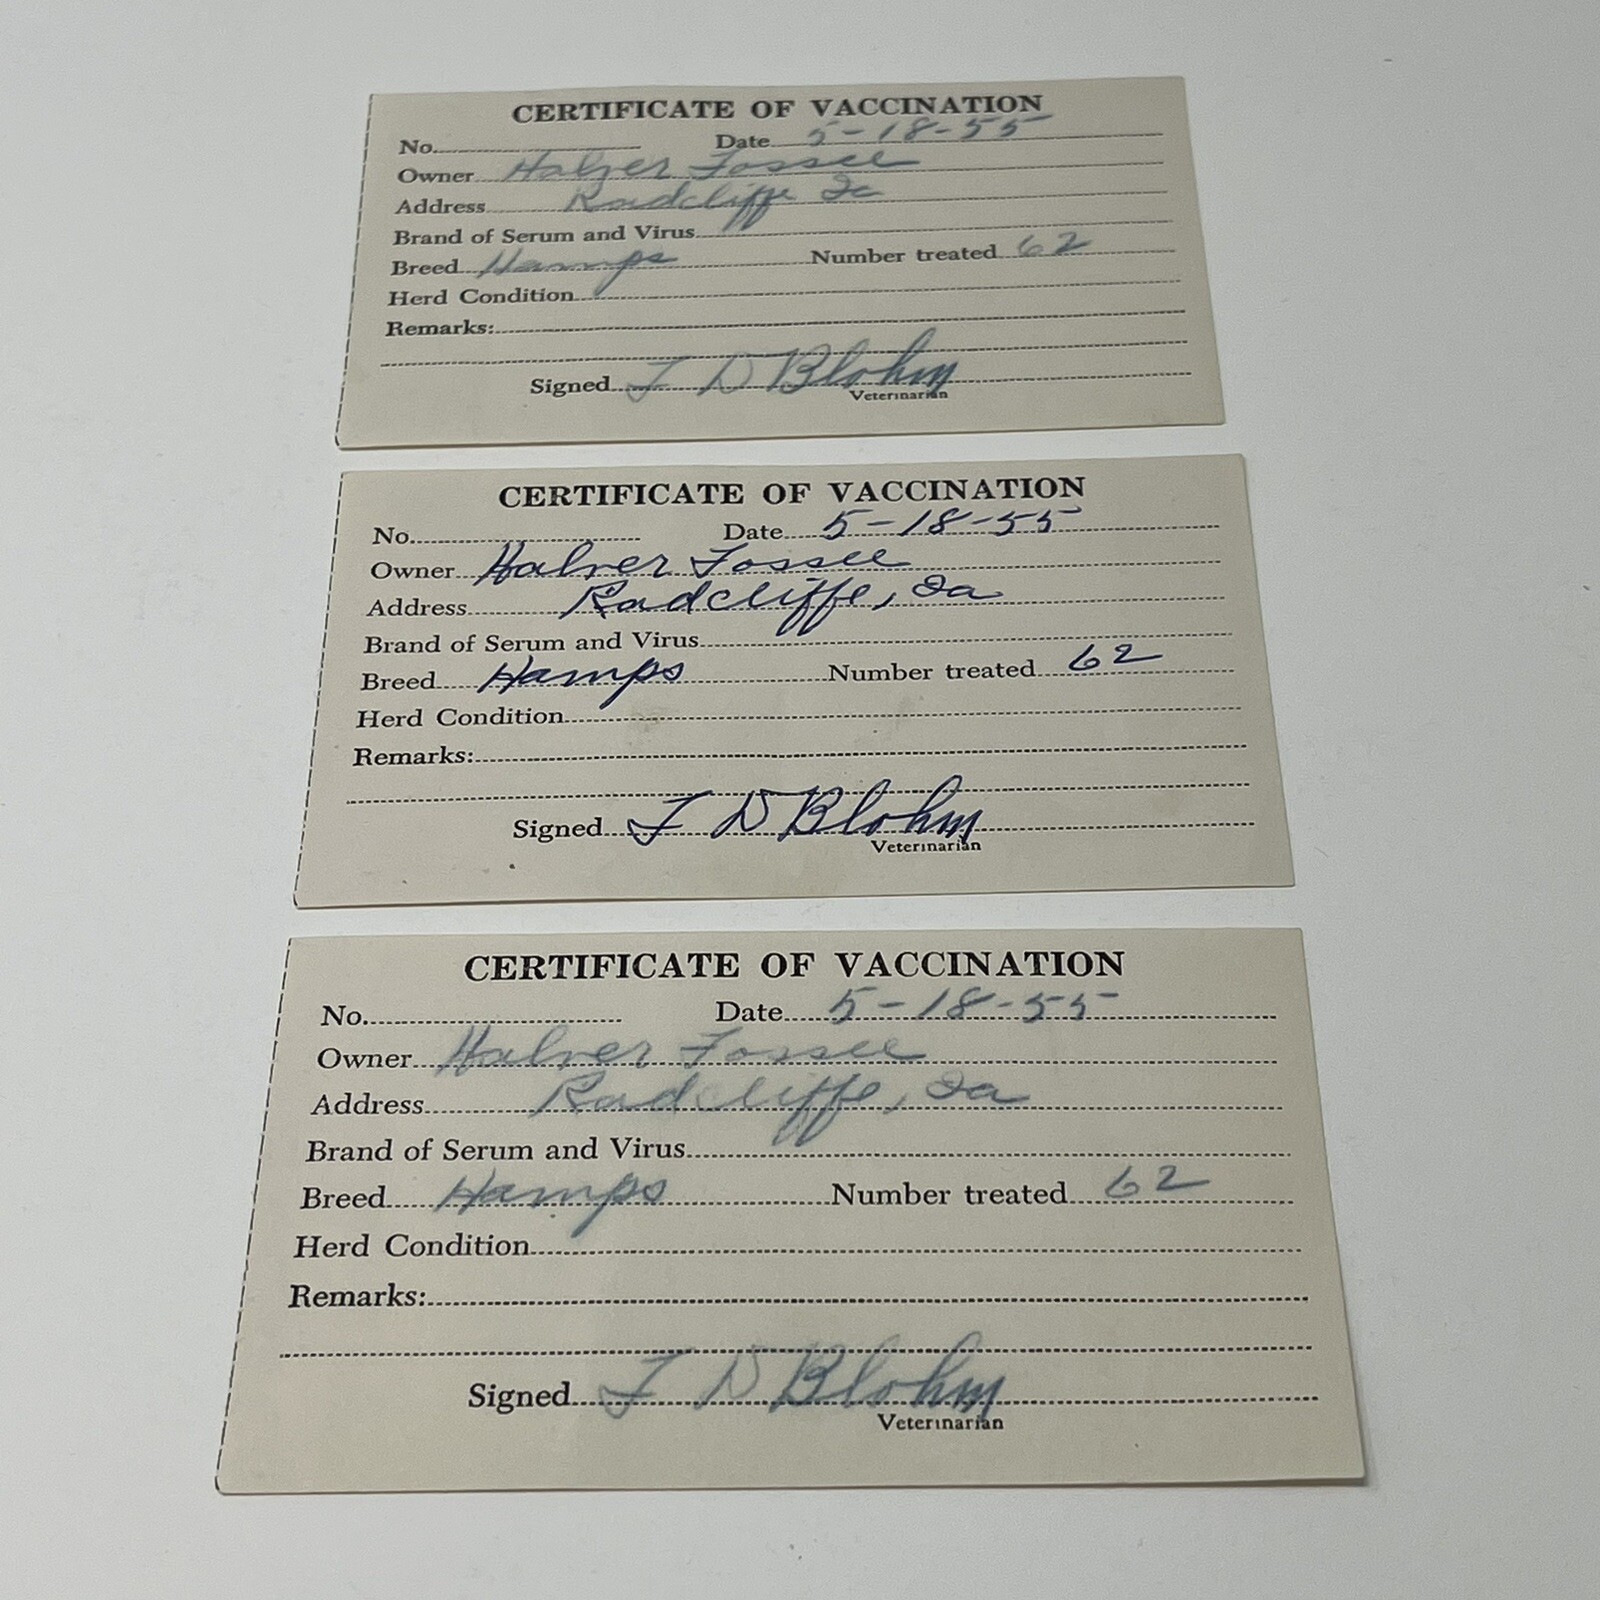 CERTIFICATE OF VACCINATION
No. Date 5-18-55
Owner Halver Fossee
Address Radcliffe Ia
Brand of Serum and Virus
Breed Hamps Number treated 62
Herd Condition
Remarks:
Signed F D Blohm
Veterinarian
CERTIFICATE OF VACCINATION
No. Date 5-18-55
Owner Halver Fossee
Address Radcliffe, Ia
Brand of Serum and Virus
Breed Hamps Number treated 62
Herd Condition
Remarks:
Signed F D Blohm
Veterinarian
CERTIFICATE OF VACCINATION
No. Date 5-18-55
Owner Halver Fossee
Address Radcliffe, Ia
Brand of Serum and Virus
Breed Hamps Number treated 62
Herd Condition
Remarks:
Signed F D Blohm
Veterinarian